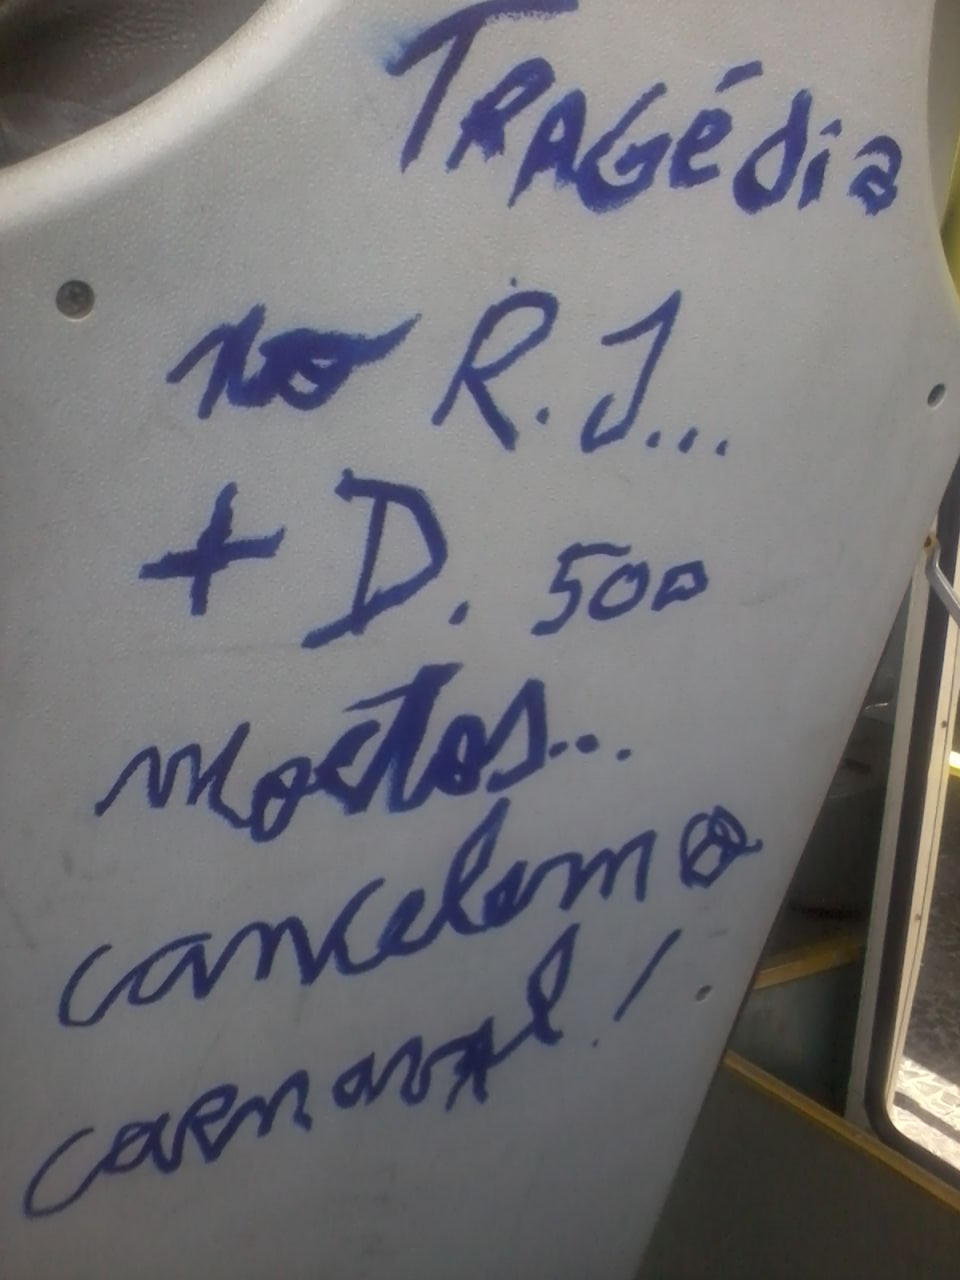 TRAGédia
no R.J...
+ D. 500
mortos...
cancelem o
carnaval!